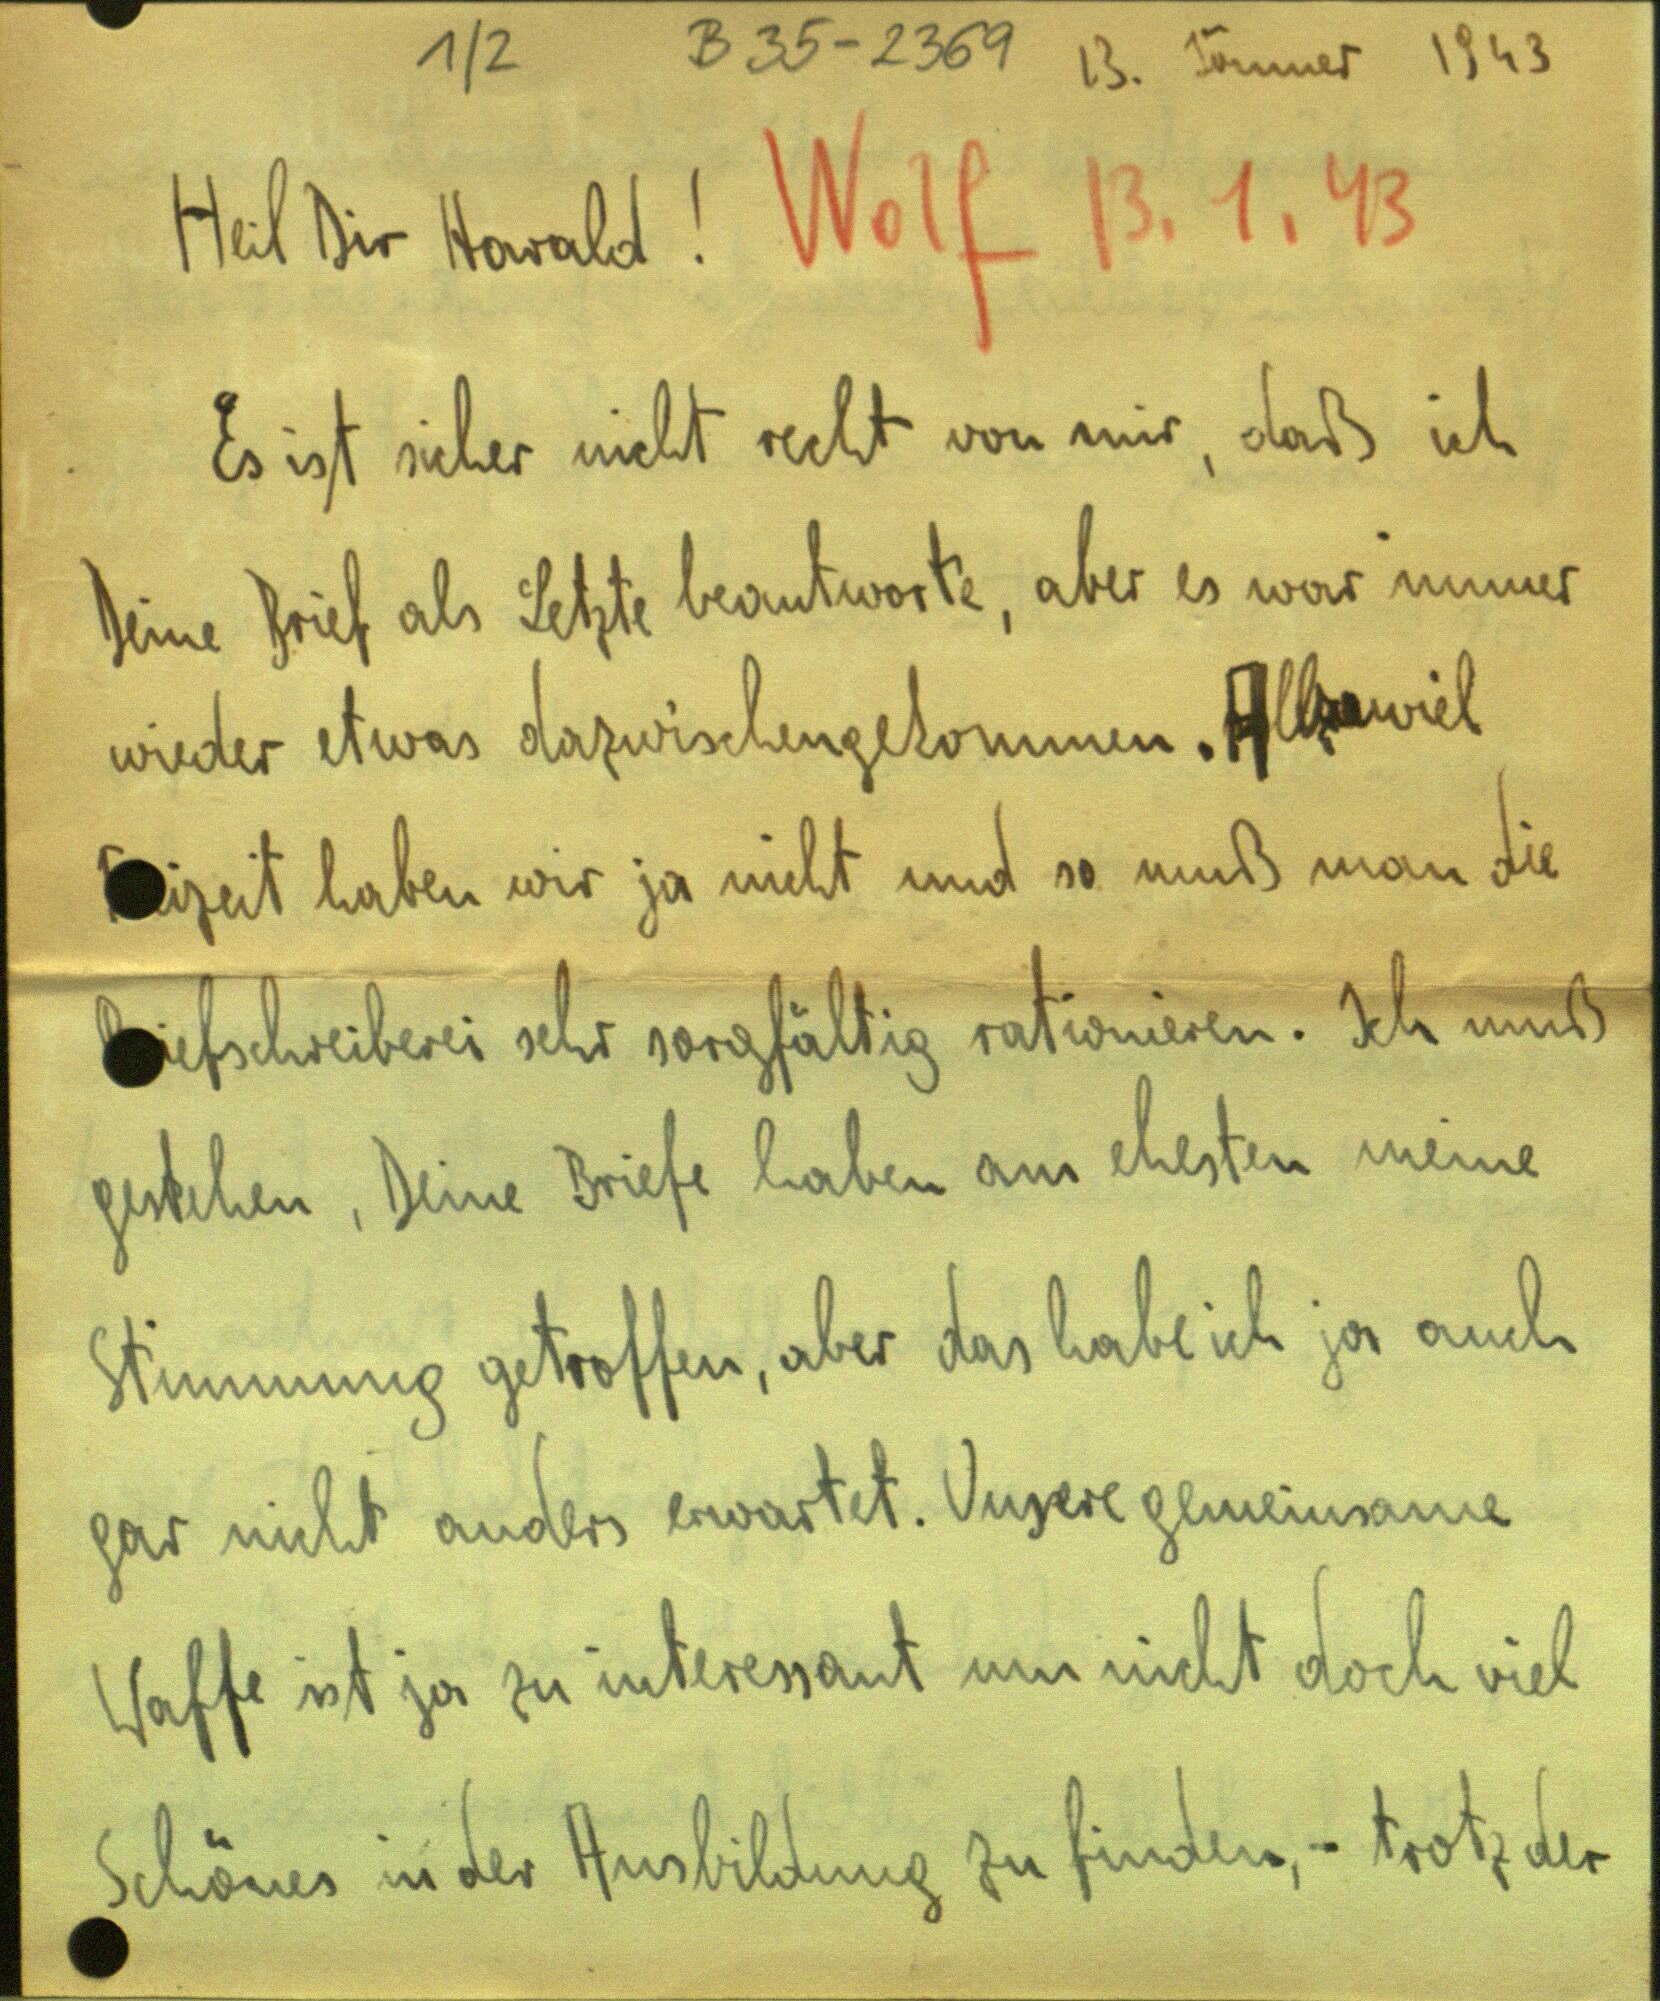 1/2 B 35-2369 13. Jänner 1943
Heil Dir Harald! Wolf 13.1.43
Es ist sicher nicht recht von mir, daß ich
Deine Brief als Letzte beantworte, aber es war immer
wieder etwas dazwischengekommen. Allzuviel
izeit haben wir ja nicht und so muß man die
iefschreiberei sehr sorgfältig rationieren. Ich muß
gestehen, Deine Briefe haben am ehesten meine
Stimmung getroffen, aber das habe ich ja auch
gar nicht anders erwartet. Unsere gemeinsame
Waffe ist ja zu interessant um nicht doch viel
Schönes in der Ausbildung zu finden, - trotz der